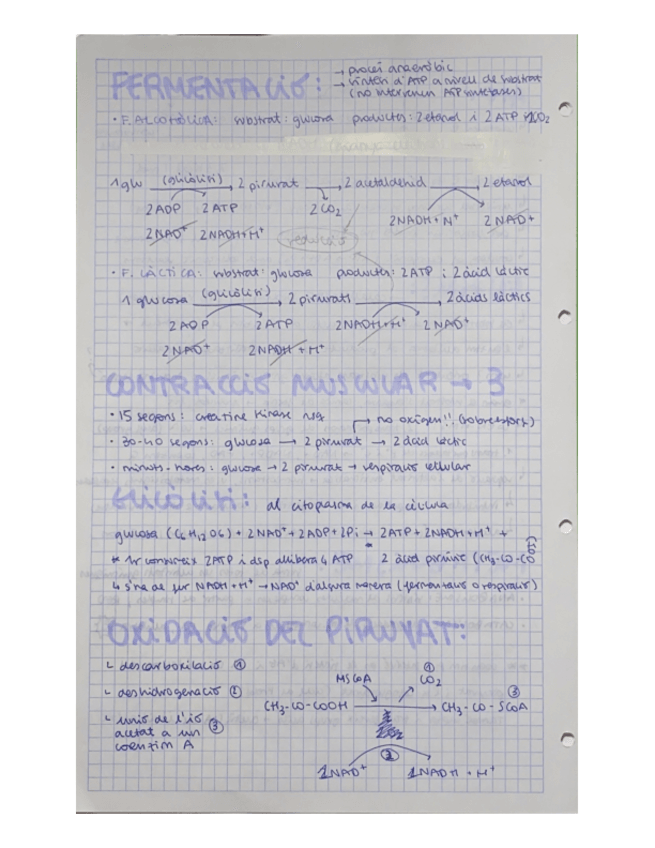 → procés anaeròbic
FERMENTACIÓ: → síntesi d'ATP a nivell de substrat
(no intervenen ATP sintetases)
· F. ALCOHÒLICA: substrat: glucosa productes: 2 etanol i 2 ATP 2CO2
1 glu (glicòlisi) → 2 piruvat → 2 acetaldehid → 2 etanol
2 ADP 2 ATP 2 CO2 2NADH + H+ 2 NAD+
2 NAD+ 2NADH+H+ reducció
· F. LÀCTICA: substrat: glucosa productes: 2 ATP i 2 àcid làctic
1 glucosa (glicòlisi) → 2 piruvats → 2 àcids làctics
2 ADP 2 ATP 2NADH+H+ 2 NAD+
2 NAD+ 2NADH + H+
CONTRACCIÓ MUSCULAR → 3
· 15 segons: creatine kinase → no oxigen!! (sobreesforç)
· 30-40 segons: glucosa → 2 piruvat → 2 àcid làctic
· minuts-hores: glucosa → 2 piruvat → respiració cel·lular
GLICÒLISI: al citoplasma de la cèl·lula
glucosa (C6H12O6) + 2NAD+ + 2ADP + 2Pi → 2ATP + 2NADH + H+ +
* 1r consumeix 2ATP i dsp allibera 4 ATP 2 àcid pirúvic (CH3-CO-CO
↳ s'ha de fer NADH+H+ → NAD+ d'alguna manera (fermentació o respiració)
OXIDACIÓ DEL PIRUVAT:
↳ descarboxilació ①
↳ deshidrogenació ②
↳ unió de l'ió acetat a un coenzim A ③
HSCoA ① CO2 ③
CH3-CO-COOH → CH3-CO-SCoA
②
1NAD+ 1NADH + H+